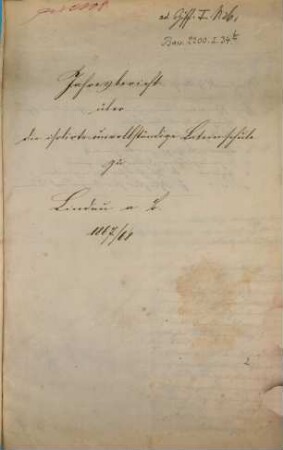 Bav. 2200. I. 34
Jahresbericht
über
die isolirte unvollständige Lateinschule
zu
Lindau a. B.
1867/68